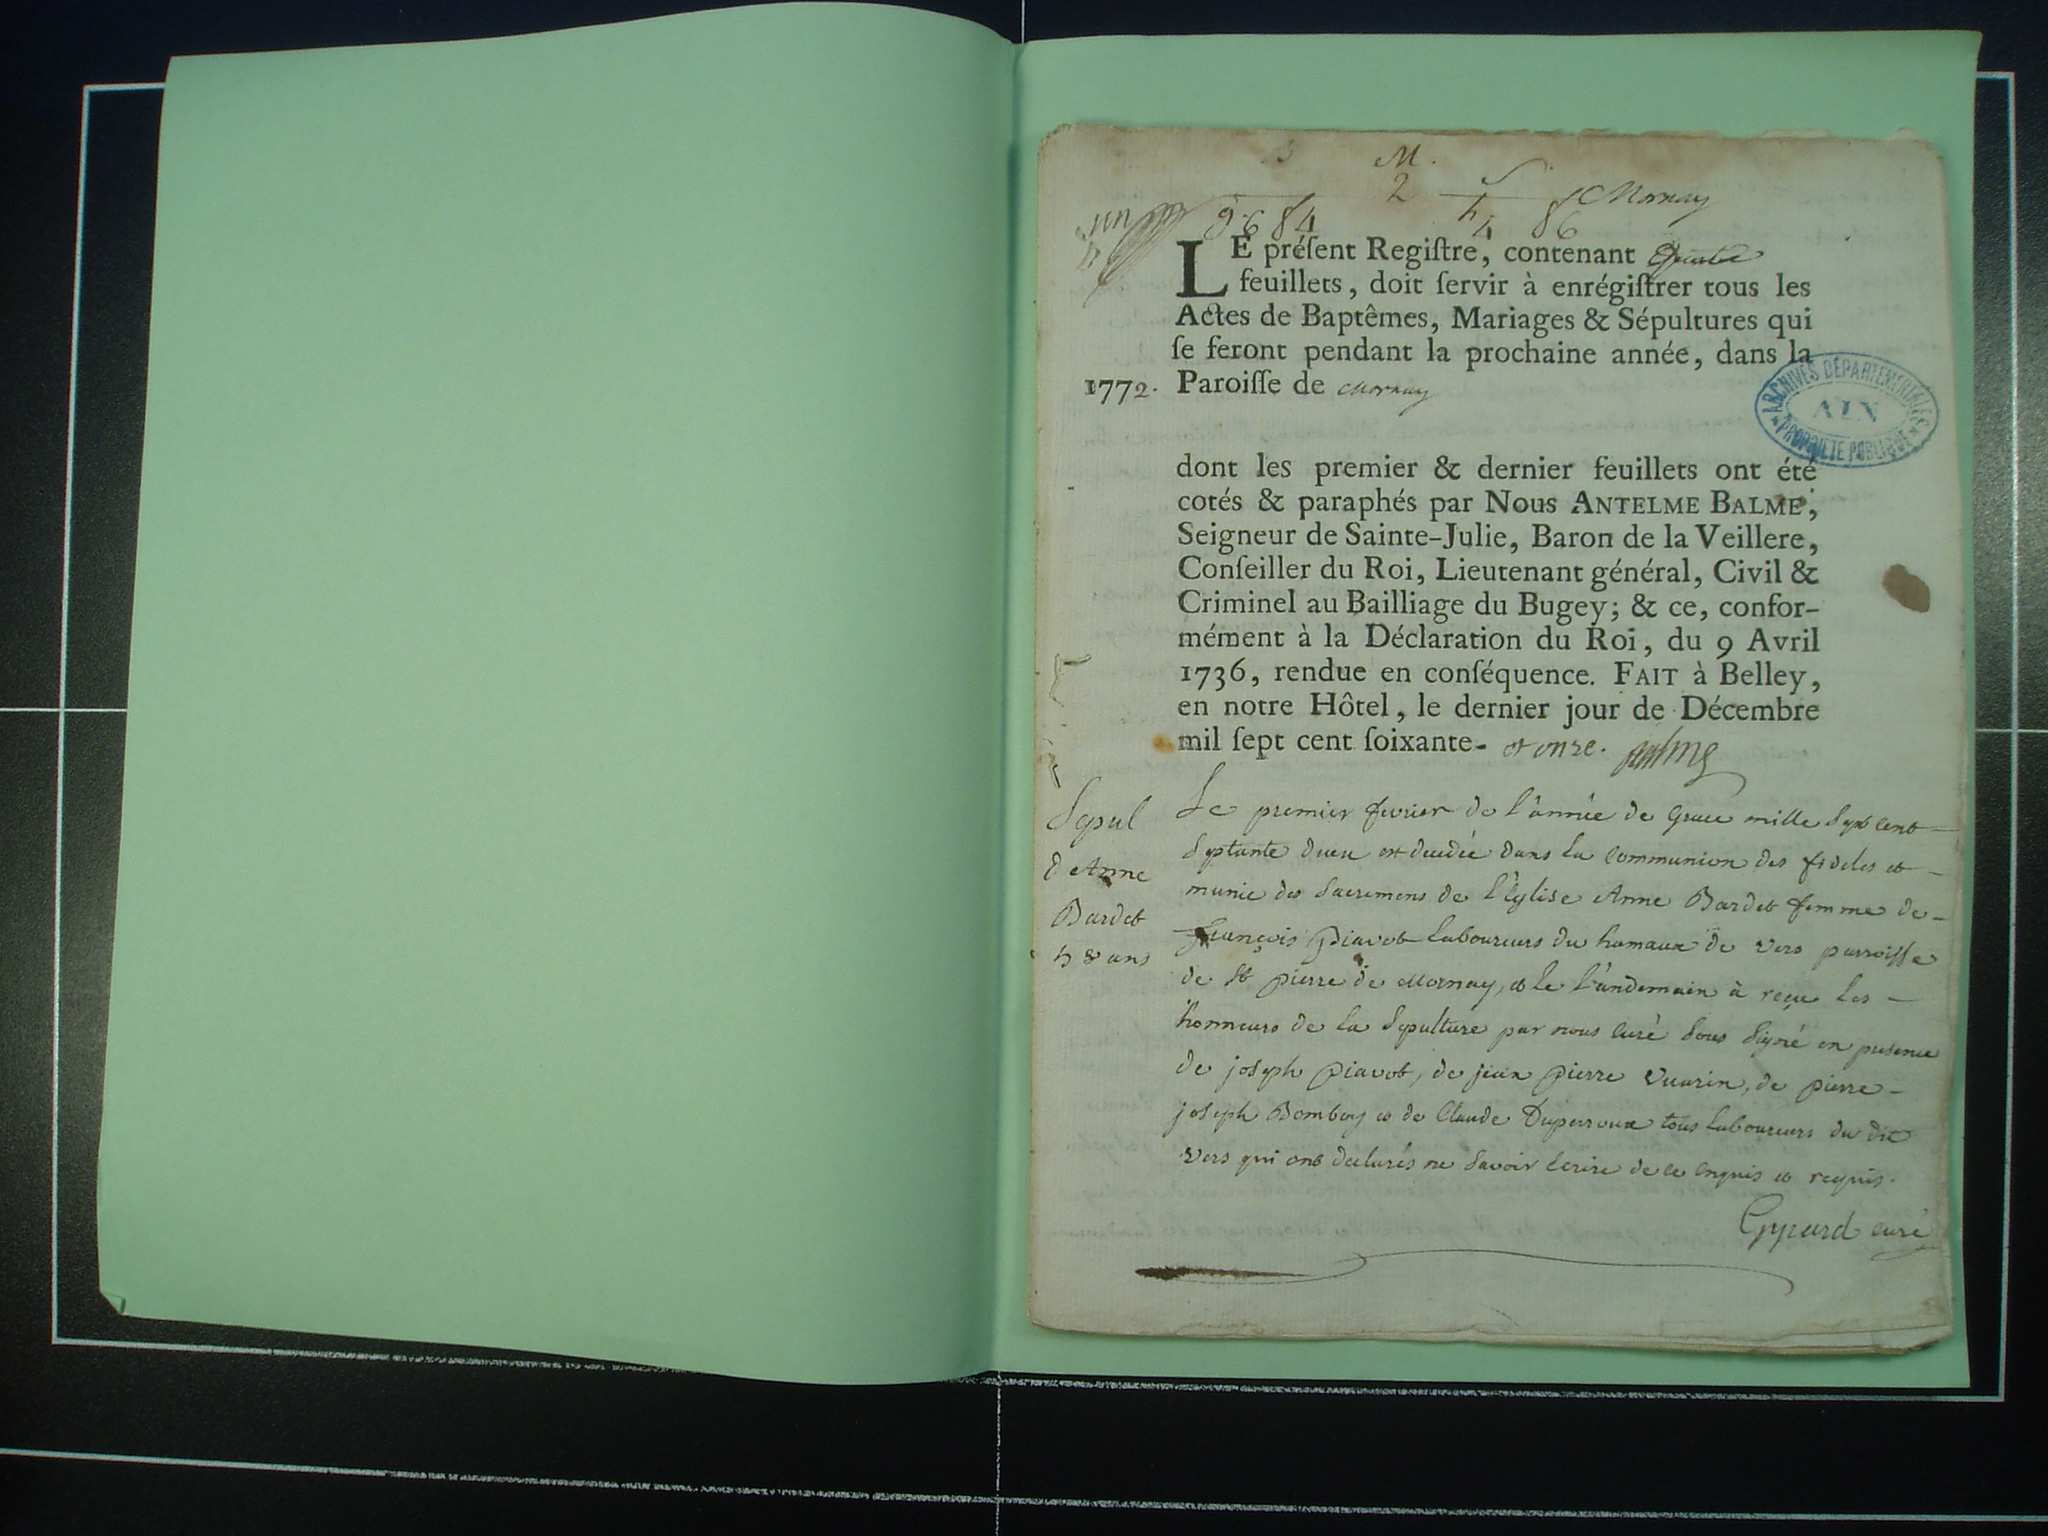 M.
2
Mornay
LE préſent Regiſtre, contenant Quatre
feuillets, doit ſervir à enrégiſtrer tous les
Actes de Baptêmes, Mariages & Sépultures qui
ſe feront pendant la prochaine année, dans la
1772. Paroiſſe de Mornay
ARCHIVES DÉPARTEMENTALES
AIN
PROPRIÉTÉ PUBLIQUE
dont les premier & dernier feuillets ont été
cotés & paraphés par Nous ANTELME BALME,
Seigneur de Sainte-Julie, Baron de la Veillere,
Conſeiller du Roi, Lieutenant général, Civil &
Criminel au Bailliage du Bugey; & ce, confor-
mément à la Déclaration du Roi, du 9 Avril
1736, rendue en conſéquence. FAIT à Belley,
en notre Hôtel, le dernier jour de Décembre
mil ſept cent ſoixante- et onze. Balme
Sepul
d'Anne
Bardet
58 ans
Le premier fevrier de l'année de Grace mille Sept Cent
Septante deux est decedée dans la Communion des fideles et
munie des Sacremens de l'Eglise Anne Bardet femme de
françois Piavot Laboureurs du hamaux de Vers parroisse
de St pierre de Mornay, et le l'andemain à reçue les
honneurs de la Sepulture par nous Curé Sous Signé en presence
de joseph Piavot, de jean Pierre Vuarin, de pierre
joseph Bomboy et de Claude Duperroux tous Laboureurs du dit
Vers qui ont declarés ne Savoir Ecrire de ce Enquis et requis.
Curé